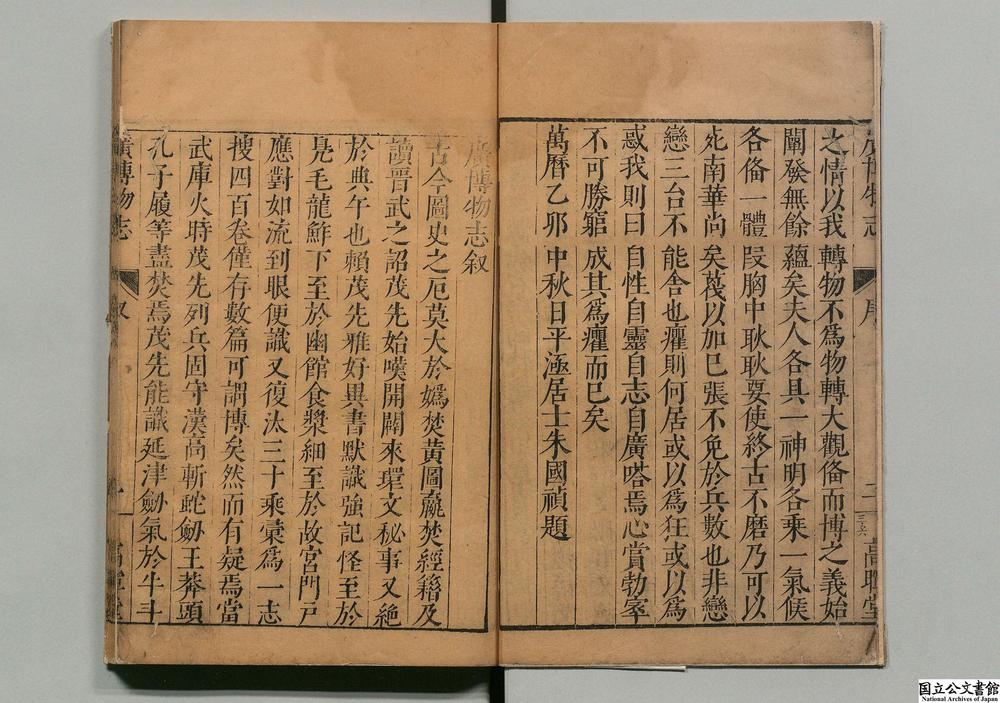 廣博物志 序 二 高暉堂
之情以我轉物不為物轉大觀備而博之義始
闡發無餘蘊矣夫人各具一神明各乘一氣候
各俻一體段胸中耿耿要使終古不磨乃可以
死南華尚矣蔑以加巳張不免於兵數也非戀
戀三台不能舍也癯則何居或以為狂或以為
惑我則曰自性自靈自志自廣嗒焉心賞勃窣
不可勝窮成其為癯而已矣
萬曆乙卯中秋日平涵居士朱國禎題
廣博物志叙
古今圖史之厄莫大於嬀焚黃圖嬴焚經籍及
讀晉武之詔茂先始嘆開闢來瓌文秘事又絕
於典午也賴茂先雅好異書默識強記怪至於
鳧毛龍鮓下至於幽館食漿細至於故宮門戸
應對如流到眼便識又復汰三十乘彙為一志
搜四百卷僅存數篇可謂博矣然而有疑焉當
武庫火時茂先列兵固守漢高斬蛇劒王莽頭
孔子履等盡焚焉茂先能識延津劒氣於牛斗
廣博物志 叙 一 高暉堂
国立公文書館
National Archives of Japan